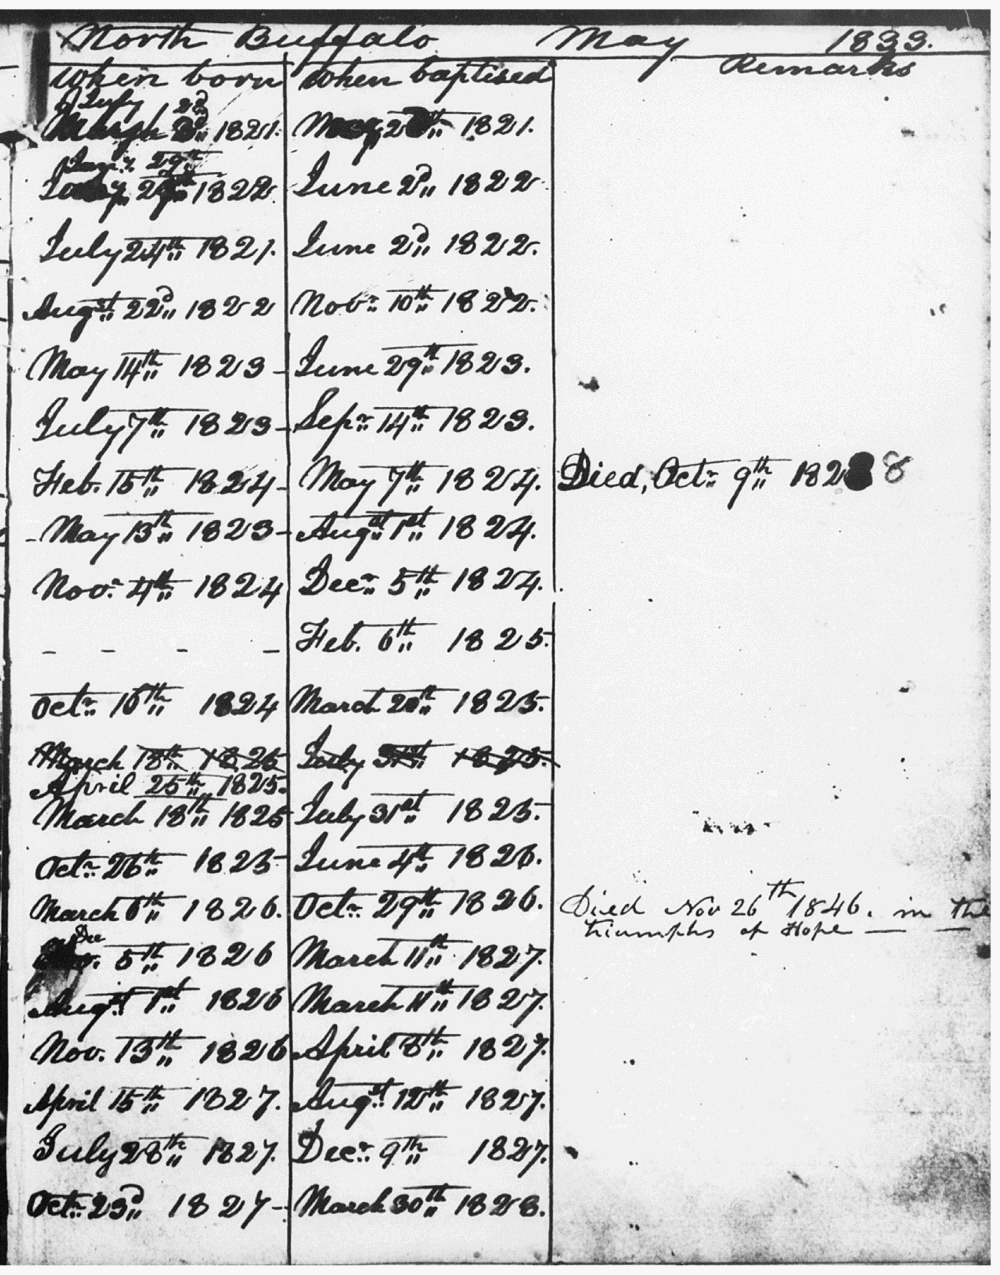 North Buffalo May 1833.
When born When baptised Remarks
July 2d
March 2d 1821. May 20th 1821.
Jany 29th
29th 1822 June 2d 1822
July 24th 1821. June 2d 1822.
Augst 22d 1822 Novr 10th 1822.
May 14th 1823 - June 29th 1823.
July 7th 1823 - Sepr 14th 1823.
Feb. 15th 1824 - May 7th 1824. Died, Octr 9th 1828 8
- May 13th 1823 - Augst 1st 1824.
Novr 4th 1824 Decr 5th 1824.
- - - - Feb. 6th 1825.
Octr 16th 1824 March 20th 1825.
March 18th 1825 July 31st 1825.
April 25th 1825.
March 18th 1825 July 31st 1825.
Octr 26th 1825 - June 4th 1826.
March 6th 1826. Octr 29th 1826. Died Nov 26th 1846. in the
triumphs of Hope — —
Dec
5th 1826 March 11th 1827.
Augst 1st 1826 March 11th 1827.
Nov. 13th 1826 April 8th 1827.
April 15th 1827. Augst 12th 1827.
July 28th 1827. Decr 9th 1827.
Octr 23d 1827 - March 30th 1828.